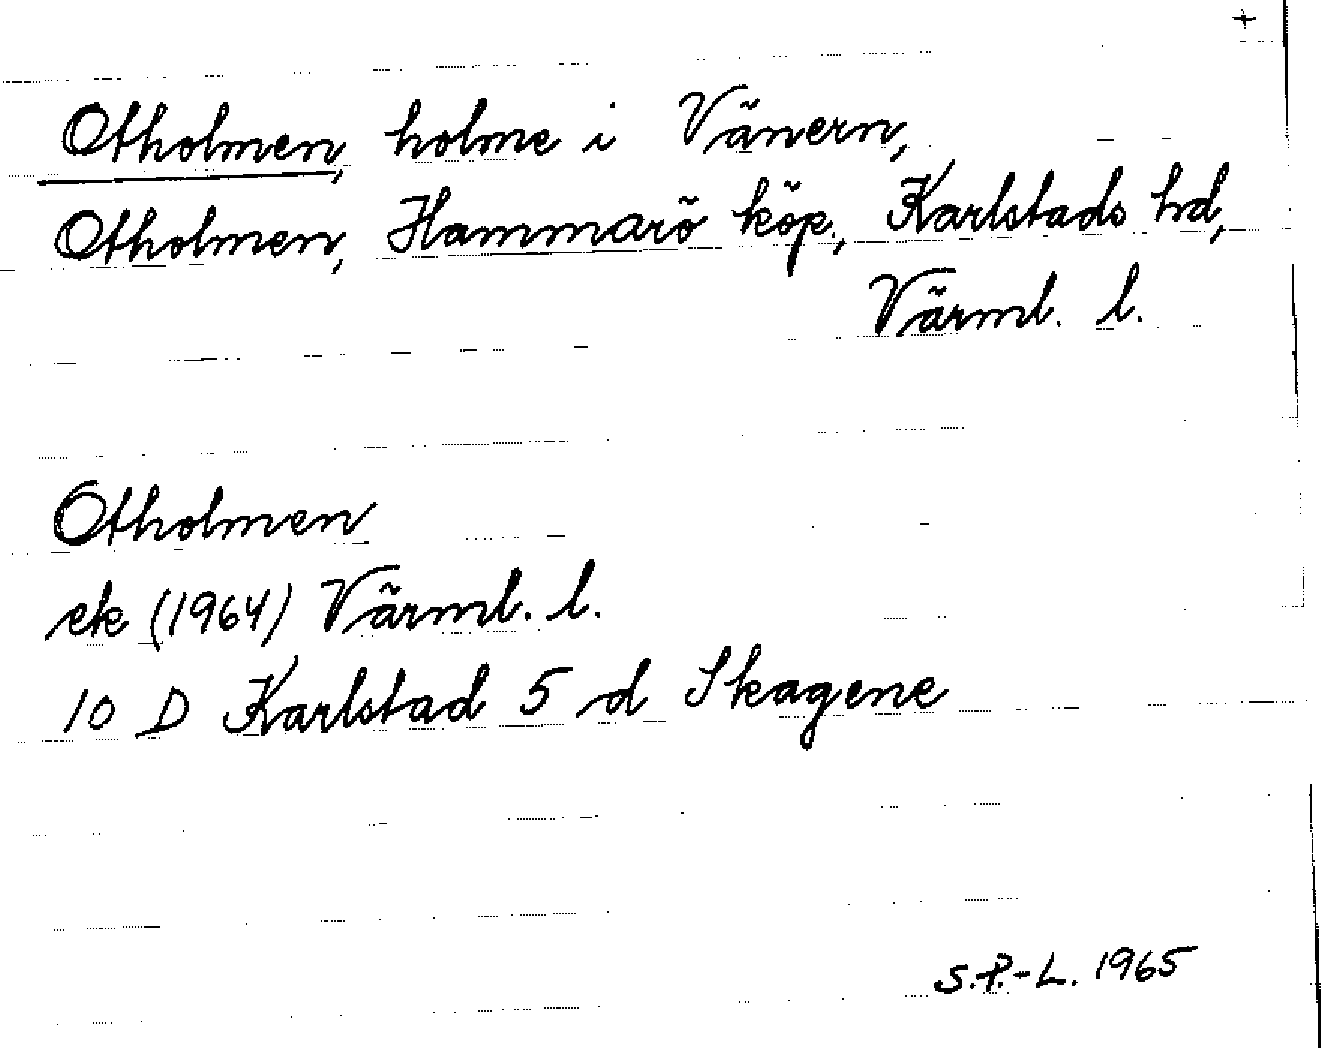 +
Otholmen, holme i Vänern,
Otholmen, Hammarö köp., Karlstads hd,
Värml. l.
Otholmen
ek (1964) Värml. l.
10 D Karlstad 5 d Skagene
S.P.-L. 1965